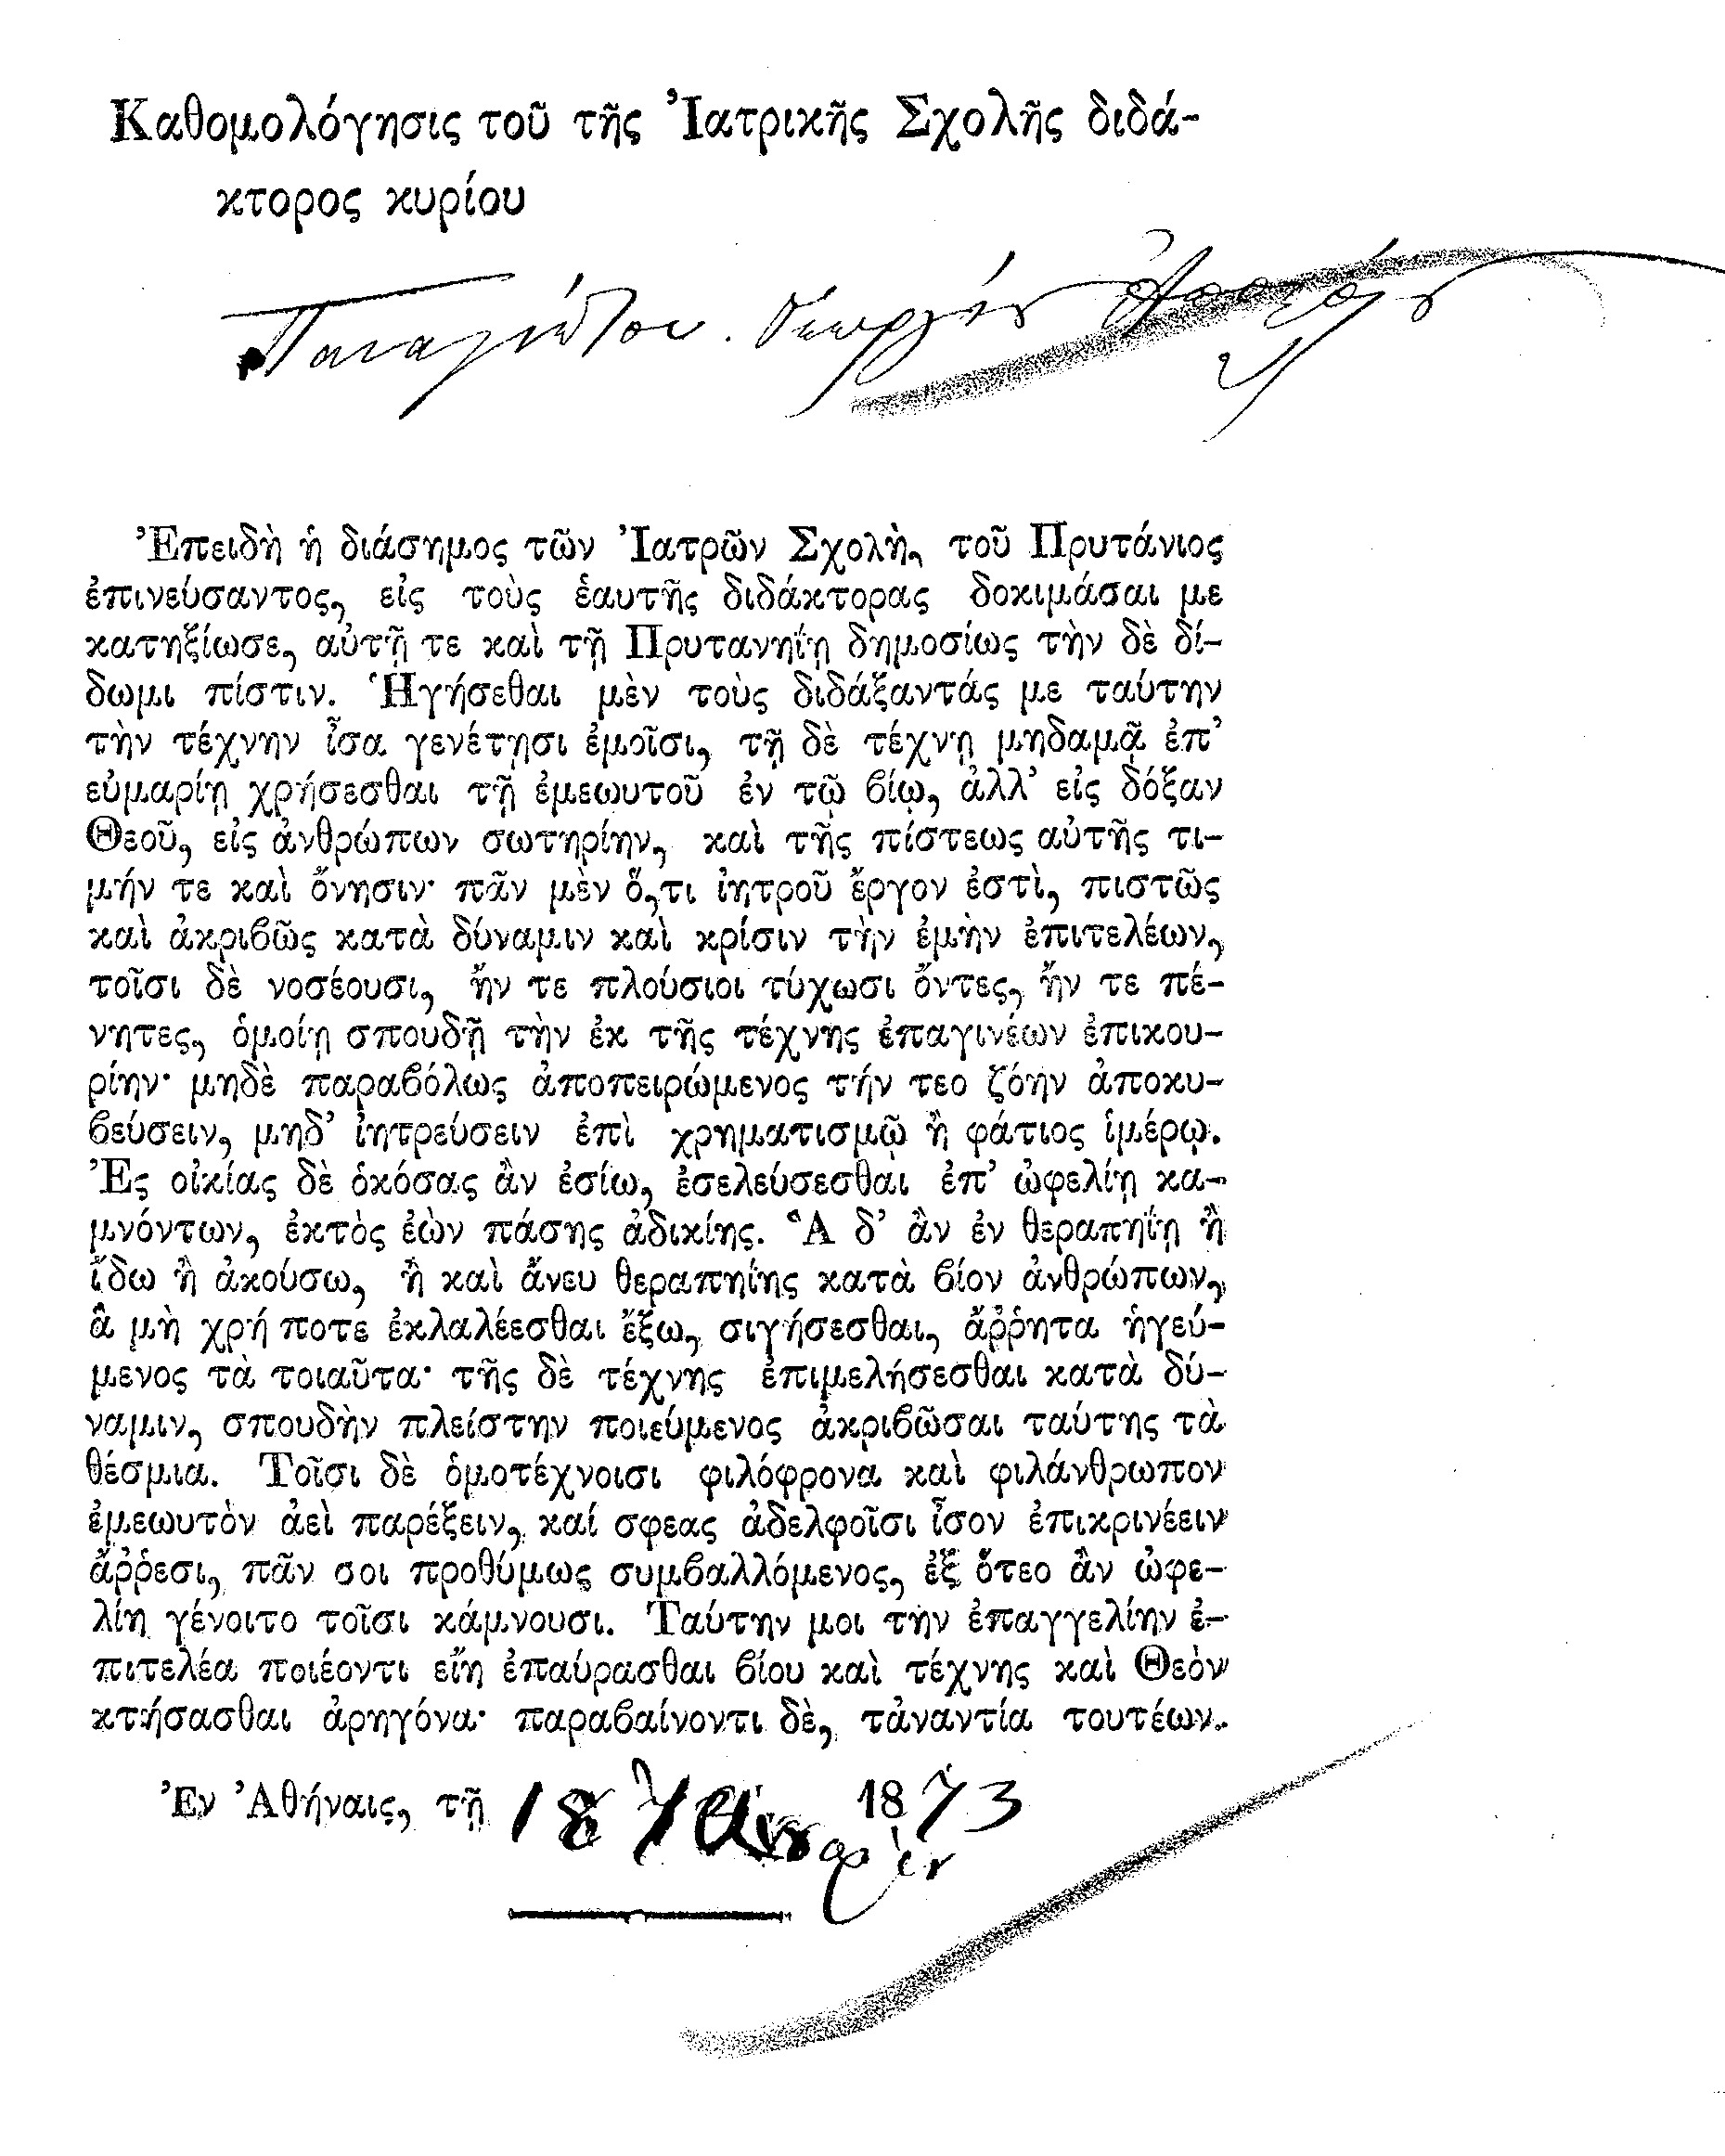 Καθομολόγησις τοῦ τῆς Ἰατρικῆς Σχολῆς διδά-
κτορος κυρίου
Παναγιώτου Γεωργίου
Ἐπειδὴ ἡ διάσημος τῶν Ἰατρῶν Σχολὴ, τοῦ Πρυτάνιος
ἐπινεύσαντος, εἰς τοὺς ἑαυτῆς διδάκτορας δοκιμάσαι με
κατηξίωσε, αὐτῇ τε καὶ τῇ Πρυτανηΐῃ δημοσίως τὴν δὲ δί-
δωμι πίστιν. Ἡγήσεθαι μὲν τοὺς διδάξαντάς με ταύτην
τὴν τέχνην ἶσα γενέτῃσι ἐμοῖσι, τῇ δὲ τέχνῃ μηδαμᾷ ἐπ’
εὐμαρίῃ χρήσεσθαι τῇ ἐμεωυτοῦ ἐν τῷ βίῳ, ἀλλ’ εἰς δόξαν
Θεοῦ, εἰς ἀνθρώπων σωτηρίην, καὶ τῆς πίστεως αὐτῆς τι-
μήν τε καὶ ὄνησιν· πᾶν μὲν ὅ,τι ἰητροῦ ἔργον ἐστὶ, πιστῶς
καὶ ἀκριβῶς κατὰ δύναμιν καὶ κρίσιν τὴν ἐμὴν ἐπιτελέων,
τοῖσι δὲ νοσέουσι, ἤν τε πλούσιοι τύχωσι ὄντες, ἤν τε πέ-
νητες, ὁμοίῃ σπουδῇ τὴν ἐκ τῆς τέχνης ἐπαγινέων ἐπικου-
ρίην· μηδὲ παραβόλως ἀποπειρώμενος τήν τεο ζόην ἀποκυ-
βεύσειν, μηδ’ ἰητρεύσειν ἐπὶ χρηματισμῷ ἢ φάτιος ἱμέρῳ.
Ἐς οἰκίας δὲ ὁκόσας ἂν ἐσίω, ἐσελεύσεσθαι ἐπ’ ὠφελίῃ κα-
μνόντων, ἐκτὸς ἐὼν πάσης ἀδικίης. Ἃ δ’ ἂν ἐν θεραπηΐῃ ἢ
ἴδω ἢ ἀκούσω, ἢ καὶ ἄνευ θεραπηίης κατὰ βίον ἀνθρώπων,
ἃ μὴ χρή ποτε ἐκλαλέεσθαι ἔξω, σιγήσεσθαι, ἄῤῥητα ἡγεύ-
μενος τὰ τοιαῦτα· τῆς δὲ τέχνης ἐπιμελήσεσθαι κατὰ δύ-
ναμιν, σπουδὴν πλείστην ποιεύμενος ἀκριβῶσαι ταύτης τὰ
θέσμια. Τοῖσι δὲ ὁμοτέχνοισι φιλόφρονα καὶ φιλάνθρωπον
ἐμεωυτὸν ἀεὶ παρέξειν, καί σφεας ἀδελφοῖσι ἶσον ἐπικρινέειν
ἄῤῥεσι, πᾶν σοι προθύμως συμβαλλόμενος, ἐξ ὅτεο ἂν ὠφε-
λίη γένοιτο τοῖσι κάμνουσι. Ταύτην μοι τὴν ἐπαγγελίην ἐ-
πιτελέα ποιέοντι εἴη ἐπαύρασθαι βίου καὶ τέχνης καὶ Θεὸν
κτήσασθαι ἀρηγόνα· παραβαίνοντι δὲ, τἀναντία τουτέων.
Ἐν Ἀθήναις, τῇ 18 1873